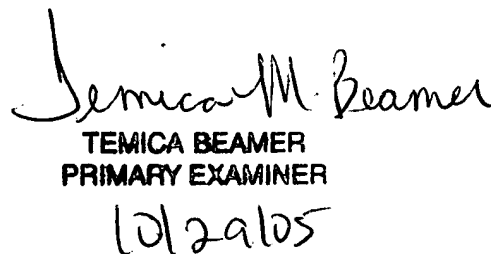 Temica M. Beamer
TEMICA BEAMER
PRIMARY EXAMINER
10/29/05